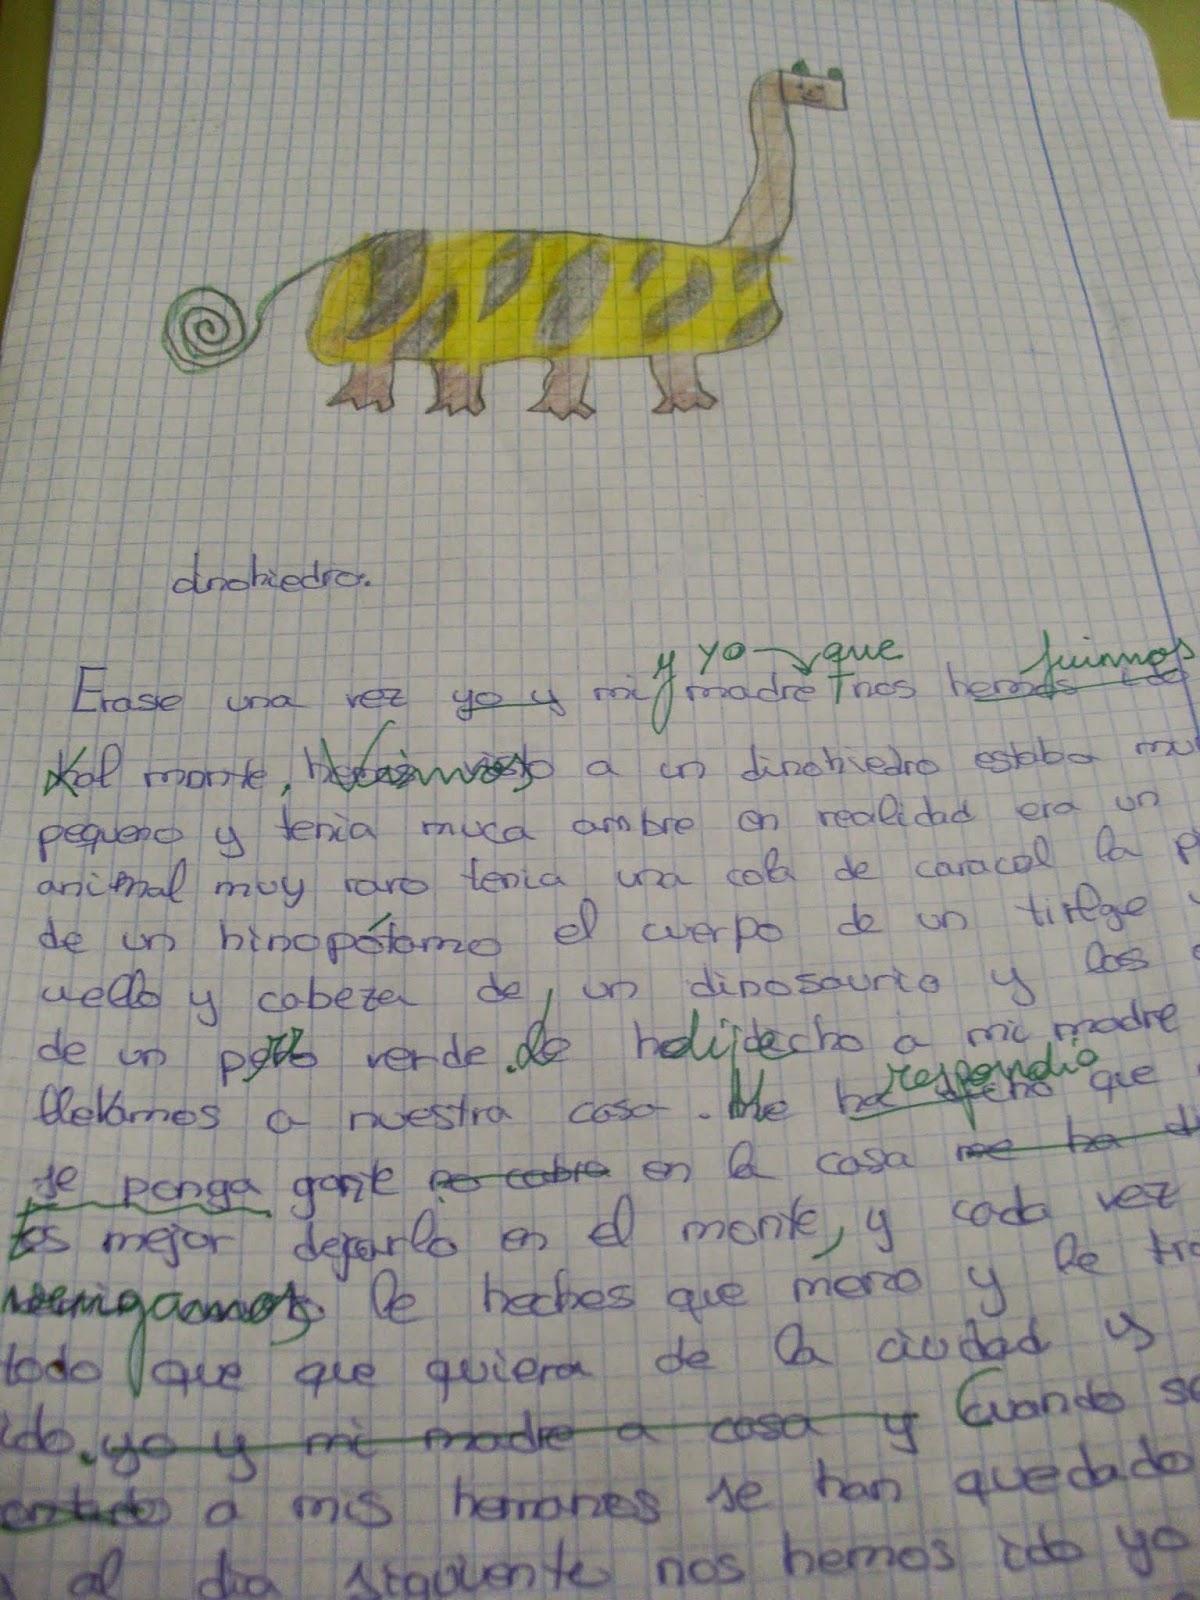 dinohiedro.
y yo que fuimos
Erase una vez yo y mi madre nos hemos ido
al monte, Vimos a un dinohiedro estaba
pequeno y tenia muca ambre en realidad era un
animal muy raro tenia una cola de caracol la
de un hinopótamo el cuerpo de un
uello y cabeza de un dinosaurio y las
de un verde. Le dije a mi madre
respondio
llevamos a nuestra casa. Me ha dicho que
se ponga gante no cabra en la casa me ha
Es mejor dejarlo en el monte, y cada vez
vengamos le heches que y le
todo que que quiera de la ciudad y
ido. yo y mi madre a casa y Cuando
a mis hemanos se han quedado
al dia siguiente nos hemos ido yo